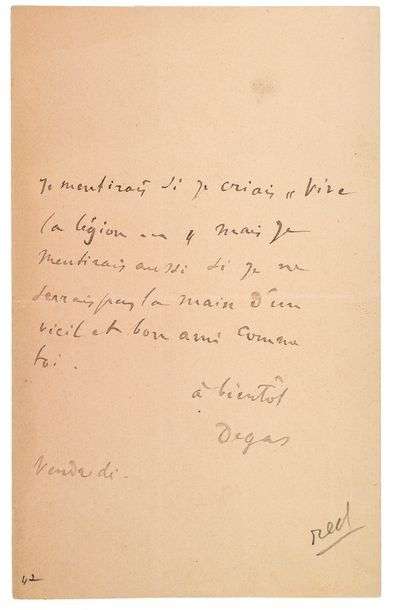 Je mentirais si je criais „ Vive
la légion ... „ mais je
mentirais aussi si je ne
serrais pas la main d'un
vieil et bon ami comme
toi.
à bientôt
Degas
Vendredi.
42